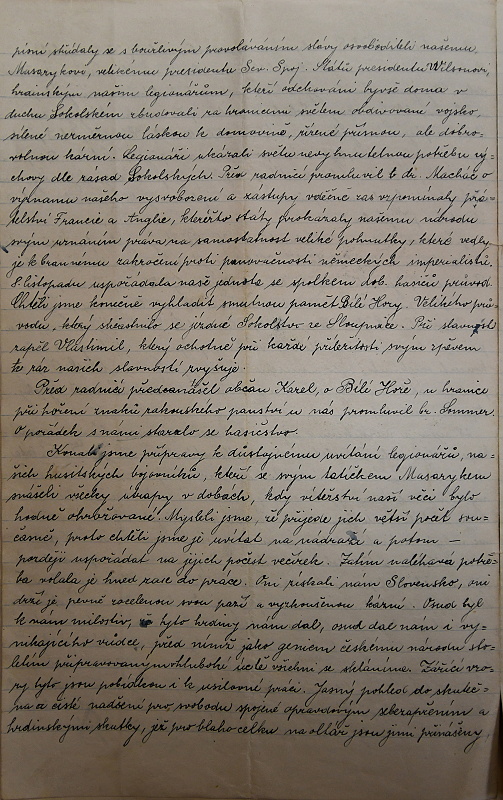 písní, střídaly se s bouřlivým provoláváním slávy osvoboditeli našemu
Masarykovi, velikému presidentu Sev. Spoj. Států presidentu Wilsonovi,
hrdinským našim legionářům, kteří odchováni byvše doma v
duchu Sokolském zbudovali za hranicemi světem obdivované vojsko,
sílené nezměrnou láskou k domovině, řízené přísnou, ale dobro-
volnou kázní. Legionáři ukázali světu nevyhnutelnou potřebu vý-
chovy dle zásad Sokolských. Před radnicí promluvil br. dr. Macháč o
významu našeho vysvobození a zástupy vděčně zas vzpomínaly přá-
telství Francie a Anglie, kterýžto státy prokázaly našemu národu
svým uznáním práva na samostatnost veliké pohnutky, které vedly
je k brannému zakročení proti panovačnosti německých imperialistů.
8 listopadu uspořádala naše jednota se spolkem dob. hasičů průvod.
Chtěli jsme konečně vyhladit smutnou paměť Bílé Hory. Velikého prů-
vodu, který súčastnilo se jízdné Sokolstvo ze Sloupnice. Při slavnosti
zapěl Vlastimil, který ochotně při každé příležitosti svým zpěvem
ráz našich slavností zvyšuje.
Před radnicí přednášel občan Karel, o Bílé Hoře, u hranice
při hoření znaků rakouského panství u nás promluvil br. Sommer.
O pořádek s námi staralo se hasičstvo.
Konali jsme přípravy k důstojnému uvítání legionářů, na-
šich husitských bojovníků, kteří se svým tatíčkem Masarykem
snášeli všecky útrapy v dobách, kdy vítězství naší věci bylo
hodně ohrožované. Mysleli jsme, že přijede jich větší počet sou-
časně, proto chtěli jsme je uvítat na nádraží a potom —
později uspořádat na jejich počest večírek. Zatím naléhavá potře-
ba volala je hned zase do práce. Oni získali nám Slovensko, oni
drží je pevně ocelenou svou paží a vyzkoušenou kázní. Osud byl
k nám milostiv, tyto hrdiny nám dal, osud dal nám i vy-
nikajícího vůdce, před nímž jako geniem českému národu sto-
letím připravovaným v hluboké úctě všichni se skláníme. Zářící vzo-
ry tyto jsou pobídkou i k usilovné práci. Jasný pohled do skuteč-
na a čisté nadšení pro svobodu spojené opravdovým sebezapřením a
hrdinskými skutky, jež pro blaho celku na oltář jsou jimi přinášeny,